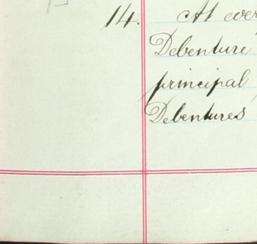 14. At ever
Debenture
principal
Debentures